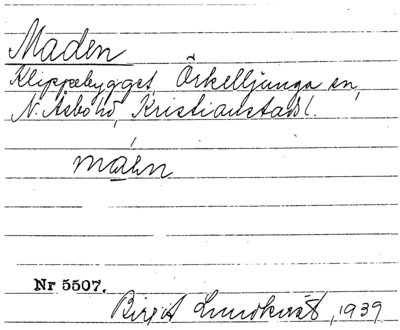 Maden
Klippebygget, Örkelljunga sn,
N. Åsbo hd, Kristianstads l.
máɛn
Nr 5507.
Birgit Lundkvist, 1939